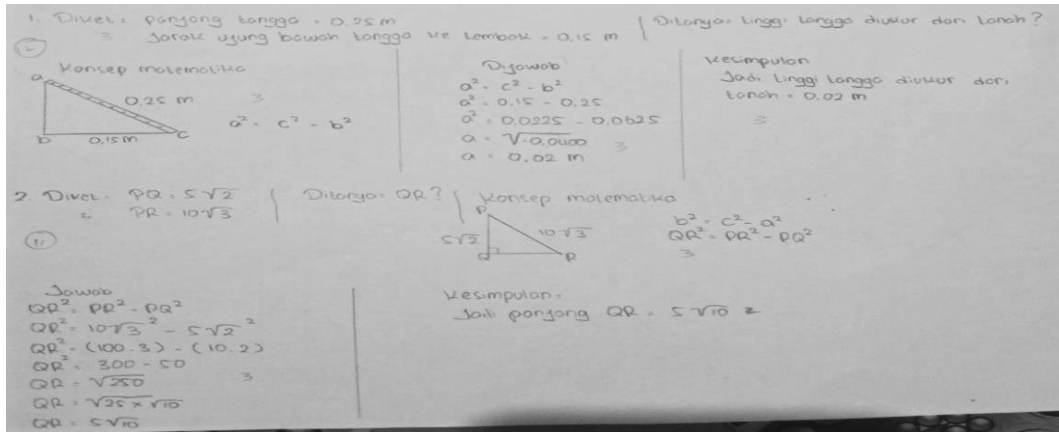 1. Diket : panjang tangga = 0.25 m
Jarak ujung bawah tangga ke tembok = 0.15 m
Ditanya : tinggi tangga diukur dari tanah ?
3
Konsep matematika
a
0.25 m
b
0,15 m
c
3
a² = c² - b²
Dijawab
a² = c² - b²
a² = 0.15 - 0.25
a² = 0.0225 - 0.0625
a = √-0,0400
a = 0.02 m
3
Kesimpulan
Jadi tinggi tangga diukur dari
tanah = 0.02 m
3
2. Diket : PQ = 5√2
PR = 10√3
Ditanya : QR ?
Konsep matematika
P
5√2
10√3
Q
R
b² = c² - a²
QR² = PR² - PQ²
3
11
Jawab
QR² = PR² - PQ²
QR² = 10√3² - 5√2²
QR² = (100.3) - (10.2)
QR² = 300 - 50
QR = √250
3
QR = √25 × √10
QR = 5√10
Kesimpulan =
Jadi panjang QR = 5√10 2